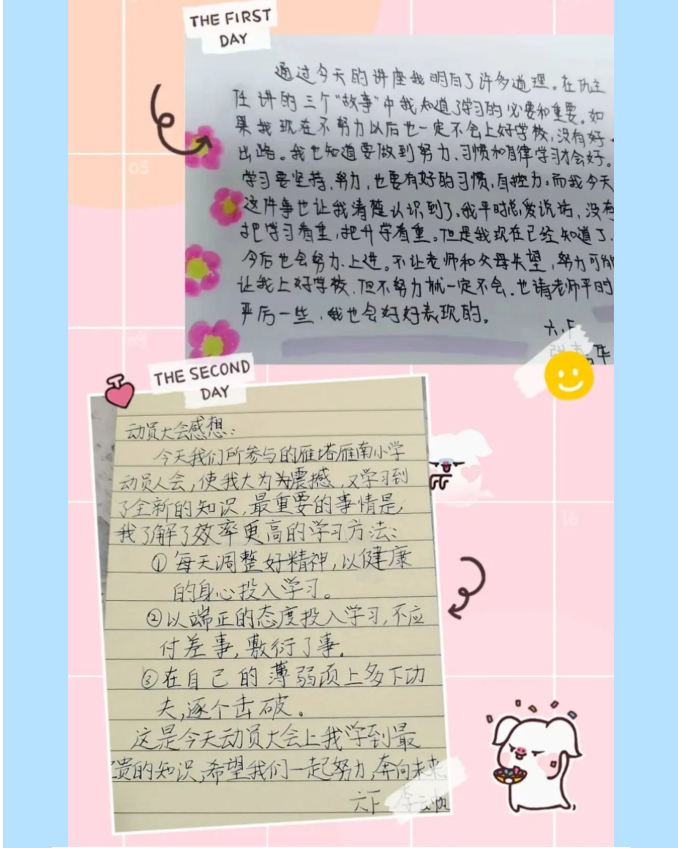 THE FIRST
DAY
05
通过今天的讲座我明白了许多道理。在仇主
任讲的三个"故事"中我知道了学习的必要和重要。如
果我现在不努力以后也一定不会上好学校，没有好
出路。我也知道要做到努力、习惯和自律学习才会好。
学习要坚持、努力，也要有好的习惯，自控力。而我今天
这件事也让我清楚认识到了。我平时总爱说话，没有
把学习看重，把升学看重。但是我现在已经知道了，
今后也会努力、上进。不让老师和父母失望，努力可能
让我上好学校，但不努力就一定不会。也请老师平时
严厉一些，我也会好好表现的。
六.F
THE SECOND
DAY
动员大会感想：
今天我们所参与的雁塔雁南小学
动员大会，使我大为震撼，又学习到
了全新的知识，最重要的事情是，
我了解了效率更高的学习方法：
①每天调整好精神，以健康
的身心投入学习。
②以端正的态度投入学习，不应
付差事，敷衍了事。
③在自己的薄弱项上多下功
夫，逐个击破。
这是今天动员大会上我学到最
贵的知识，希望我们一起努力，奔向未来
六F 李
16